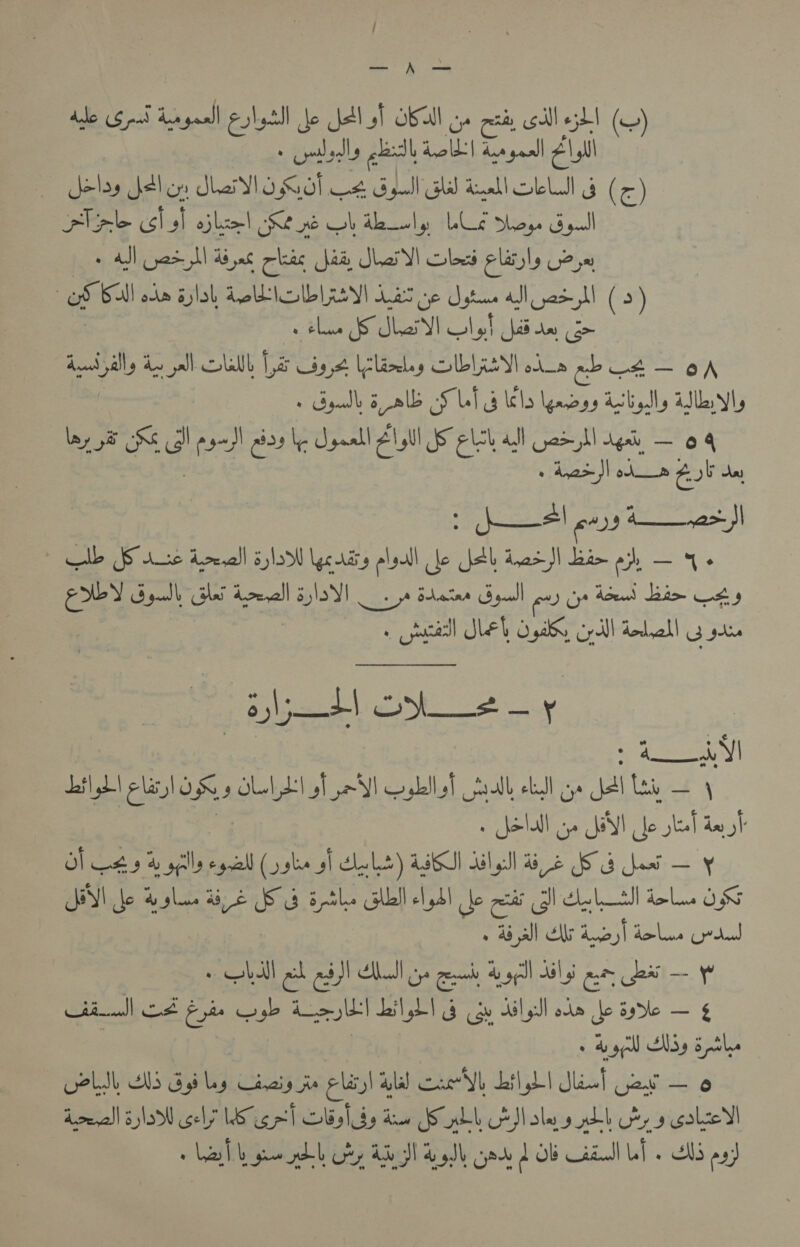 — ٨ —
(ب) الجزء الذى يفتح من الدكان أو المحل على الشوارع العمومية تسرى عليه
اللوائح العمومية الخاصة بالتنظيم والبوليس .
(ج) فى الساعات المعينة لغلق السوق يجب أن يكون الاتصال بين المحل وداخل
السوق موصلا تماما بواسطة باب غير ممكن اجتيازه أو أى حاجز آخر
بعرض وارتفاع فتحات الاتصال يقفل بمفتاح بمعرفة المرخص اليه .
(د) المرخص اليه مسئول عن تنفيذ الاشتراطات الخاصة بادارة هذه الدكاكين
حتى بعد قفل أبواب الاتصال كل مساء .
٥٨ — يجب طبع هذه الاشتراطات وملحقاتها بحروف تقرأ باللغات العربية والفرنسية
والايطالية واليونانية ووضعها دائما فى أماكن ظاهرة بالسوق .
٥٩ — يتعهد المرخص اليه باتباع كل اللوائح المعمول بها ودفع الرسوم التى يمكن تقريرها
بعد تاريخ هذه الرخصة .
الرخصة ورسم المحل :
٦٠ — يلزم حفظ الرخصة بالمحل على الدوام وتقديمها للادارة الصحية عند كل طلب
ويجب حفظ نسخة من رسم السوق معتمدة من الادارة الصحية تعلق بالسوق لاطلاع
مندوبى المصلحة الذين يكلفون بأعمال التفتيش .
٢ — محلات الجزارة
الأبنية :
١ — ينشأ المحل من البناء بالدبش أو الطوب الأحمر أو الخراسان ويكون ارتفاع الحوائط
أربعة أمتار على الأقل من الداخل .
٢ — تعمل فى كل غرفة النوافذ الكافية (شبابيك أو مناور) للضوء والتهوية ويجب أن
تكون مساحة الشبابيك التى تفتح على الهواء الطلق مباشرة فى كل غرفة مساوية على الأقل
لسدس مساحة أرضية تلك الغرفة .
٣ — تغطى جميع نوافذ التهوية بنسيج من السلك الرفيع لمنع الذباب .
٤ — علاوة على هذه النوافذ يبنى فى الحوائط الخارجية طوب مفرغ تحت السقف
مباشرة وذلك للتهوية .
٥ — تبيض أسفال الحوائط بالأسمنت لغاية ارتفاع متر ونصف وما فوق ذلك بالبياض
الاعتيادى ويرش بالجير ويعاد الرش بالجير كل سنة وفى أوقات أخرى كلما تراءى للادارة الصحية
لزوم ذلك . أما السقف فان لم يدهن بالبوية الزيتية يرش بالجير سنويا أيضا .